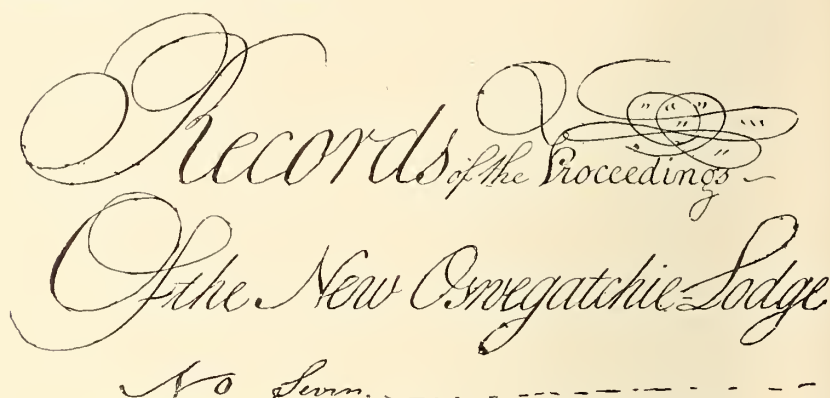 Records of the Proceedings
Of the New Oswegatchie=Lodge
No Seven.